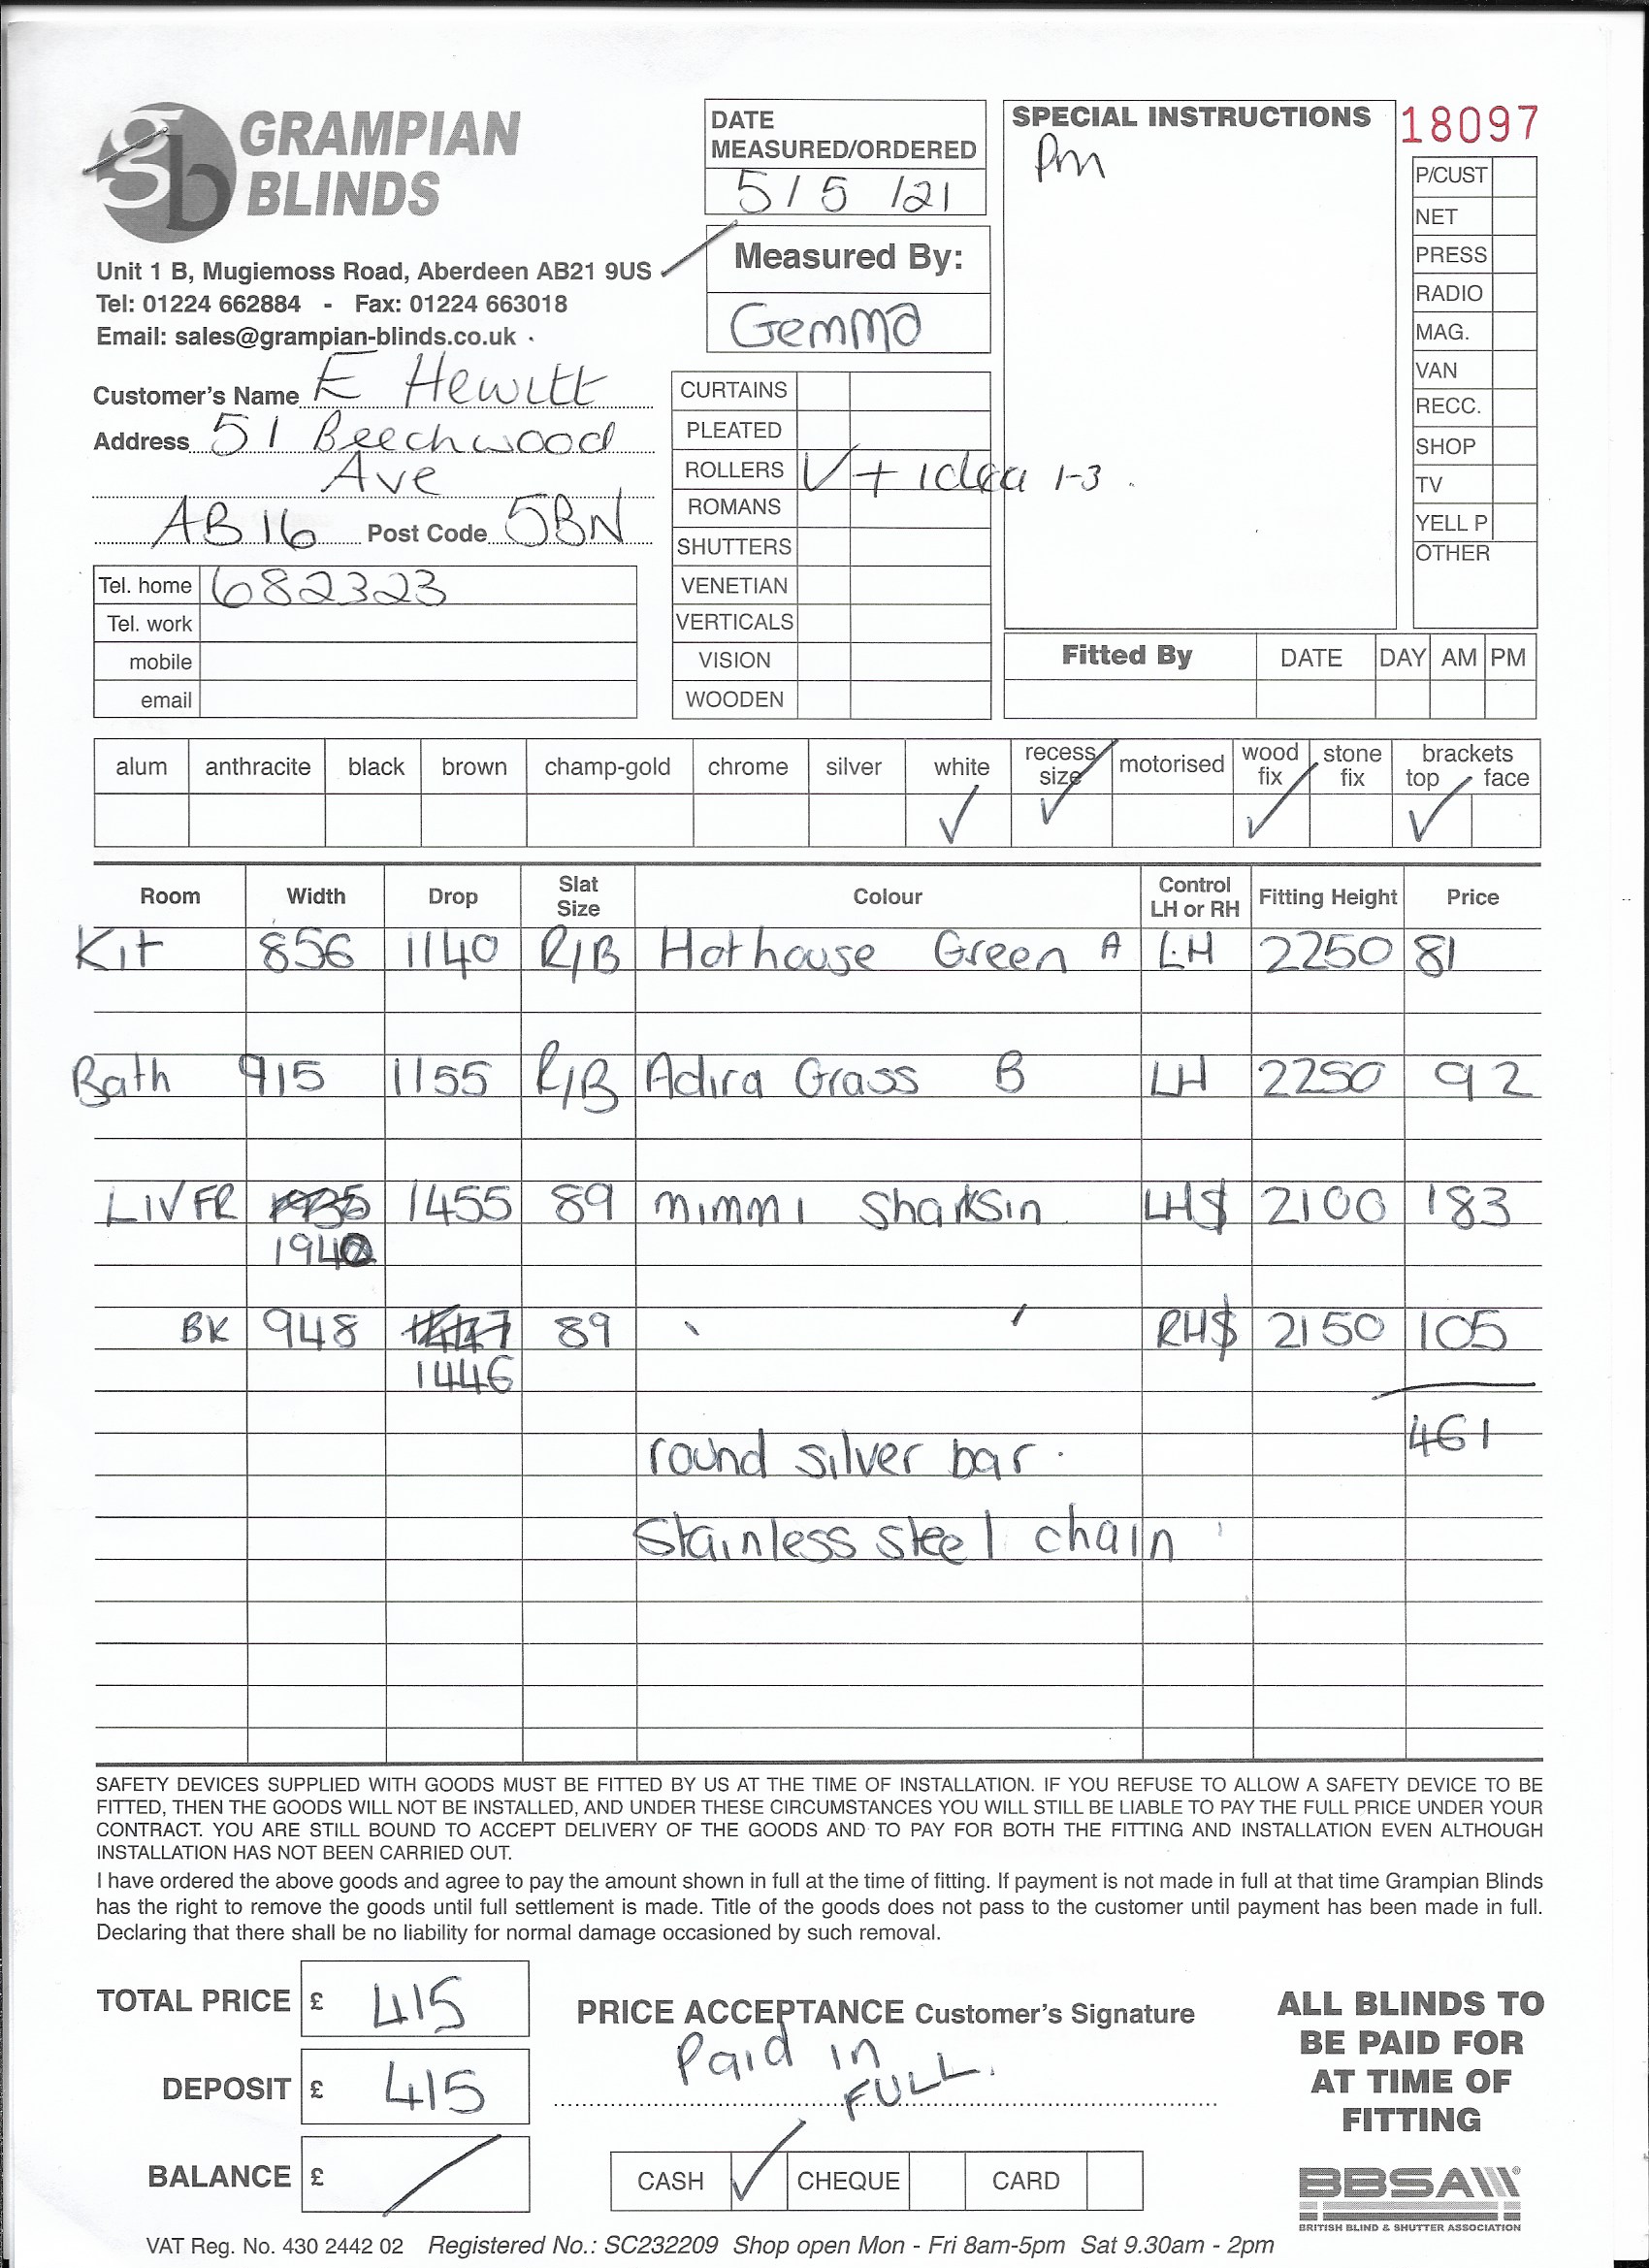 gb GRAMPIAN BLINDS
Unit 1 B, Mugiemoss Road, Aberdeen AB21 9US
Tel: 01224 662884 - Fax: 01224 663018
Email: sales@grampian-blinds.co.uk
DATE MEASURED/ORDERED
5/5/21
Measured By:
Gemma
SPECIAL INSTRUCTIONS
Pm
18097
P/CUST
NET
PRESS
RADIO
MAG.
VAN
RECC.
SHOP
TV
YELL P
OTHER
Customer's Name E Hewitt
Address 51 Beechwood
Ave
AB16 Post Code 5BN
Tel. home 682323
Tel. work
mobile
email
CURTAINS
PLEATED
ROLLERS ✓ + idea 1-3
ROMANS
SHUTTERS
VENETIAN
VERTICALS
VISION
WOODEN
Fitted By DATE DAY AM PM
alum anthracite black brown champ-gold chrome silver white recess size motorised wood fix stone fix brackets top face
✓ ✓ ✓ ✓
Room Width Drop Slat Size Colour Control LH or RH Fitting Height Price
Kit 856 1140 R/B Hothouse Green A LH 2250 81
Bath 915 1155 R/B Adira Grass B LH 2250 92
LIV FR 1455 89 mimmi Sharksin LH$ 2100 183
1940
BK 948 89 RH$ 2150 105
1446
461
round silver bar.
Stainless steel chain
SAFETY DEVICES SUPPLIED WITH GOODS MUST BE FITTED BY US AT THE TIME OF INSTALLATION. IF YOU REFUSE TO ALLOW A SAFETY DEVICE TO BE
FITTED, THEN THE GOODS WILL NOT BE INSTALLED, AND UNDER THESE CIRCUMSTANCES YOU WILL STILL BE LIABLE TO PAY THE FULL PRICE UNDER YOUR
CONTRACT. YOU ARE STILL BOUND TO ACCEPT DELIVERY OF THE GOODS AND TO PAY FOR BOTH THE FITTING AND INSTALLATION EVEN ALTHOUGH
INSTALLATION HAS NOT BEEN CARRIED OUT.
I have ordered the above goods and agree to pay the amount shown in full at the time of fitting. If payment is not made in full at that time Grampian Blinds
has the right to remove the goods until full settlement is made. Title of the goods does not pass to the customer until payment has been made in full.
Declaring that there shall be no liability for normal damage occasioned by such removal.
TOTAL PRICE £ 415
DEPOSIT £ 415
BALANCE £ /
PRICE ACCEPTANCE Customer's Signature
Paid in
FULL.
CASH ✓ CHEQUE CARD
ALL BLINDS TO
BE PAID FOR
AT TIME OF
FITTING
BBSA
BRITISH BLIND & SHUTTER ASSOCIATION
VAT Reg. No. 430 2442 02 Registered No.: SC232209 Shop open Mon - Fri 8am-5pm Sat 9.30am - 2pm